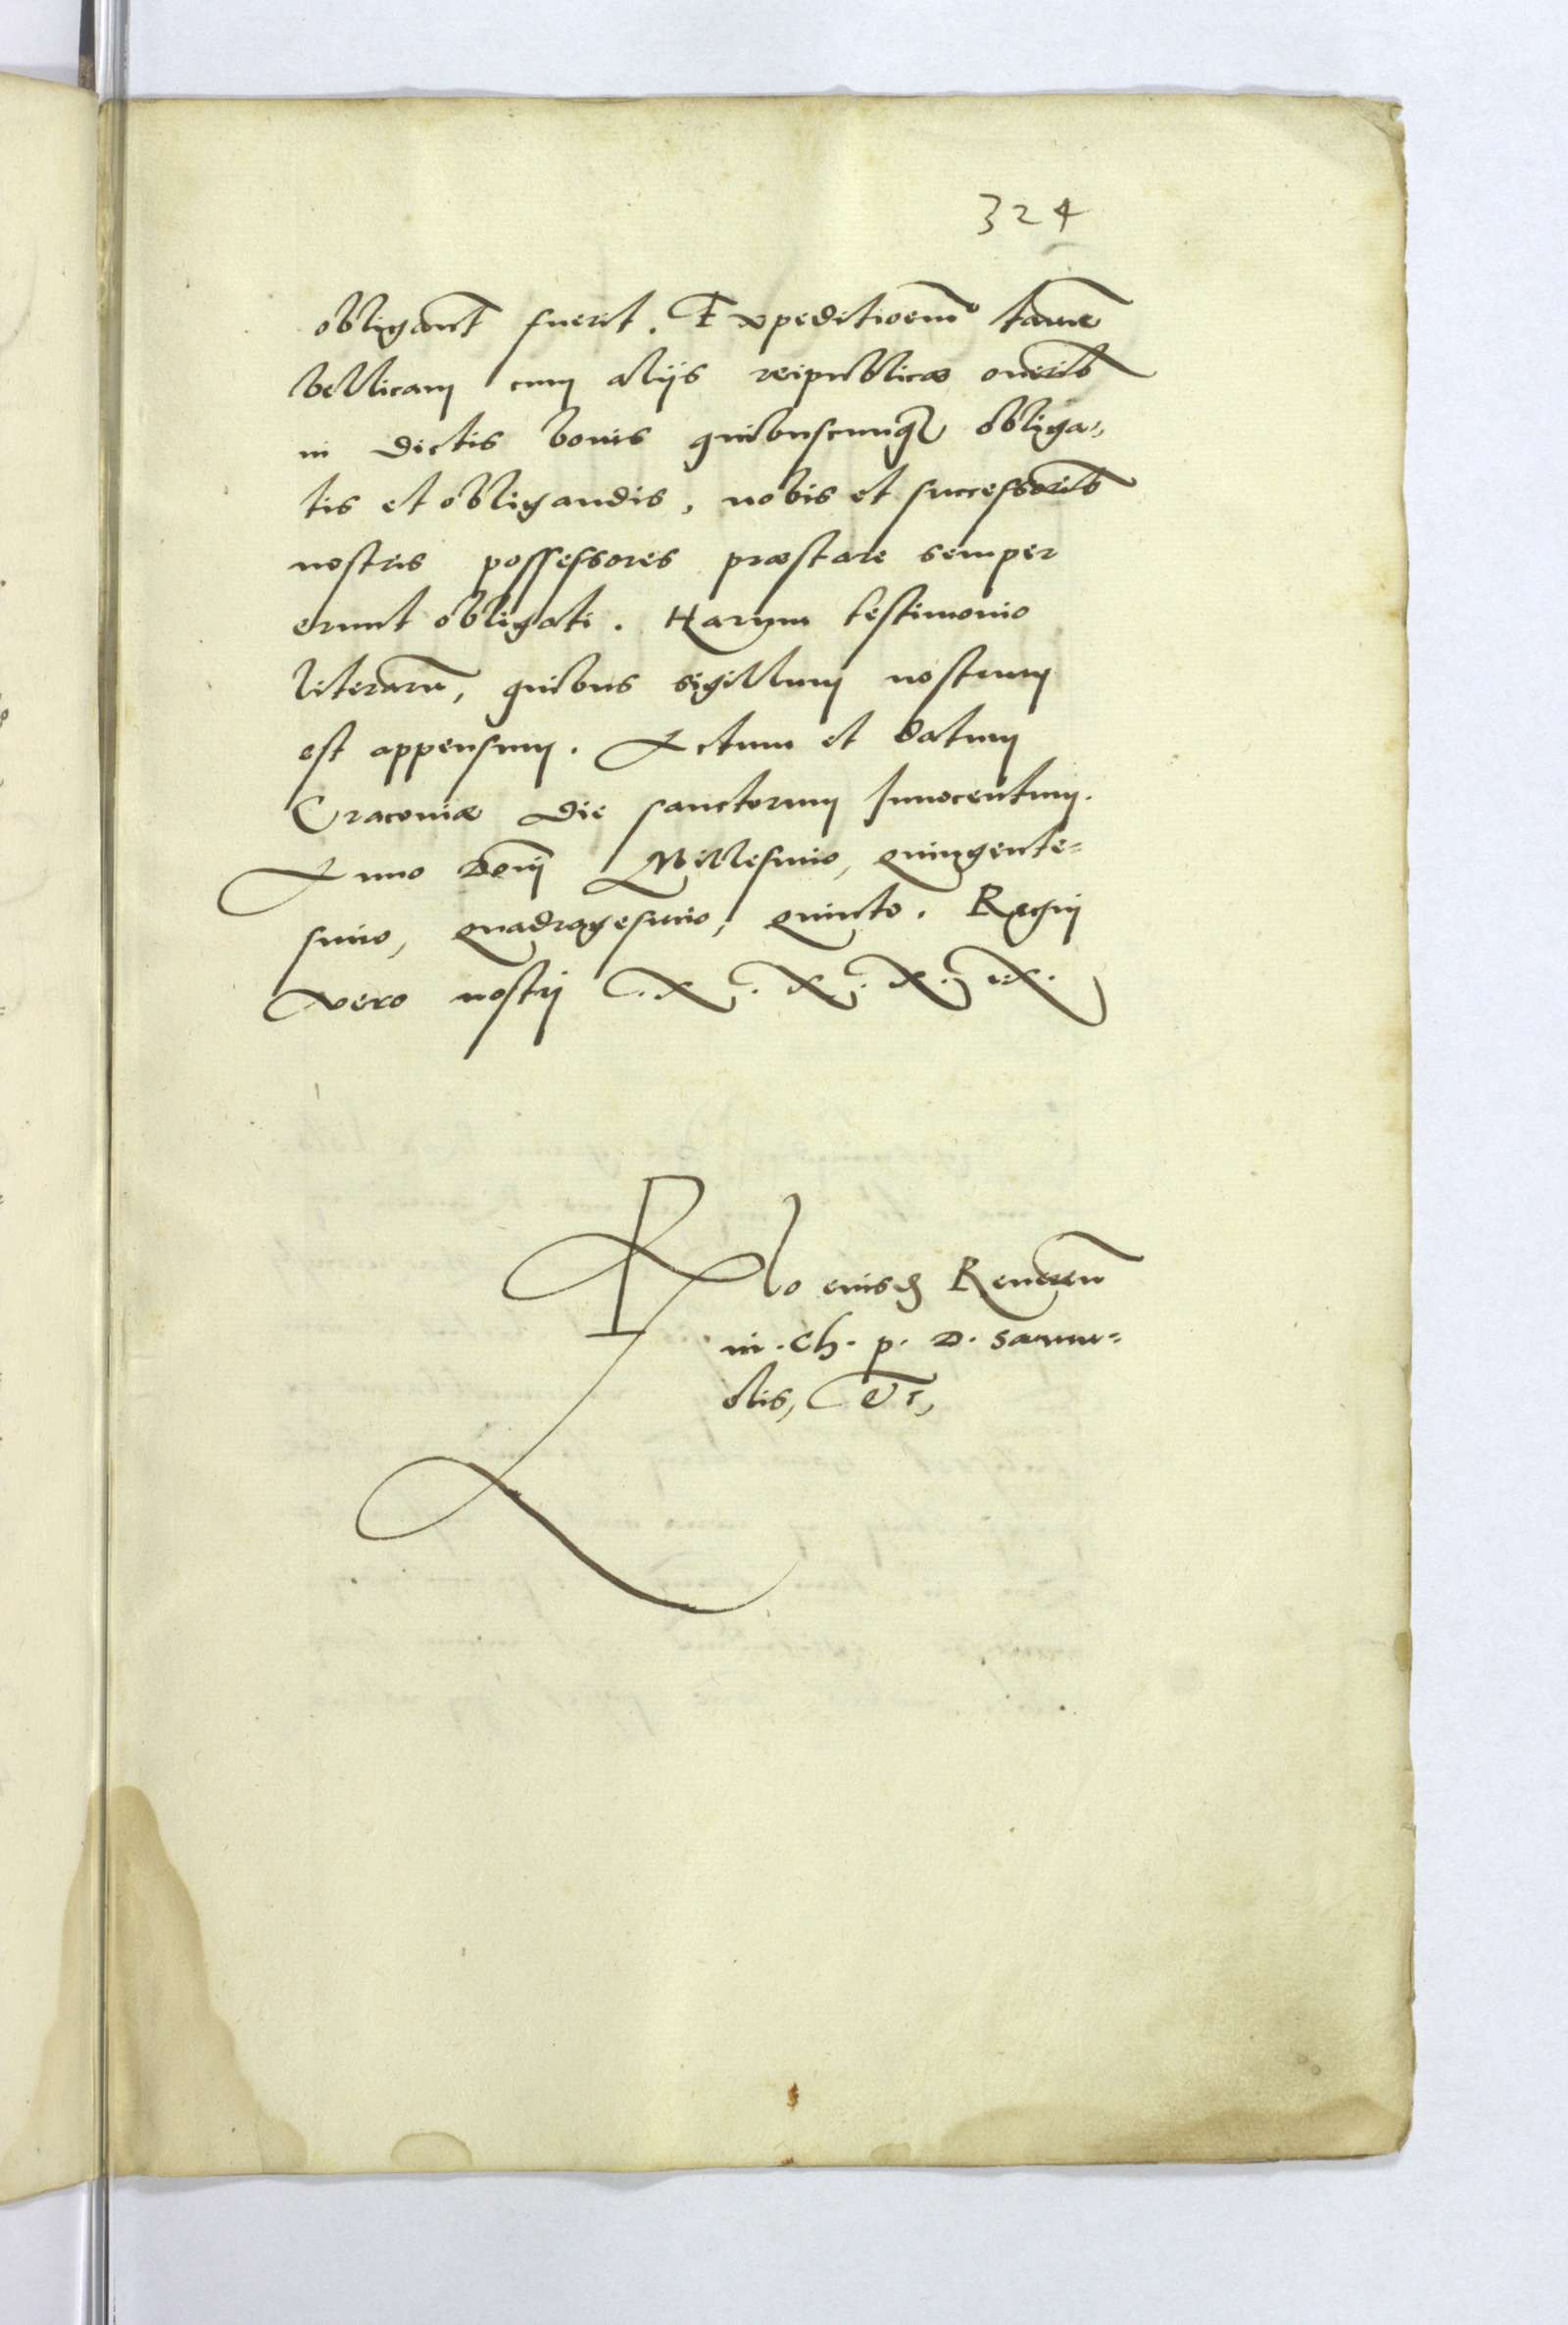 324
obligant fuerit. Expeditioem tame
bellicam cum alijs reipublicæ onerib
in dictis bonis quibuscunq obliga-
tis et obligandis, nobis et successorib
nostris possessores præstare semper
erunt obligati. Harum testimonio
literaru, quibus sigillum nostrum
est appensum. Actum et datum
Cracoviæ die sanctorum Innocentum.
Anno Dom Millesimo, quingente-
simo, quadragesimo, quinto. Regni
vero nostri .X.X.X.IX.
Rlo eiusd Reueren
in. Ch. p. D. Samu-
elis, Et,